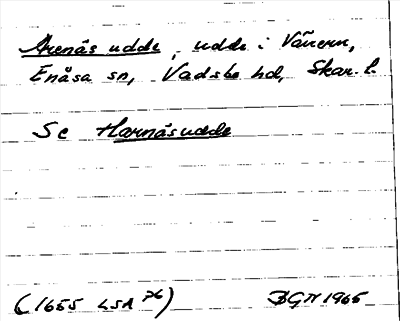 Arenäs udde, udde i Vänern,
Enåsa sn, Vadsbo hd, Skar. l.
Se Harnäsudde
(1655 LSA P6) BGM 1965